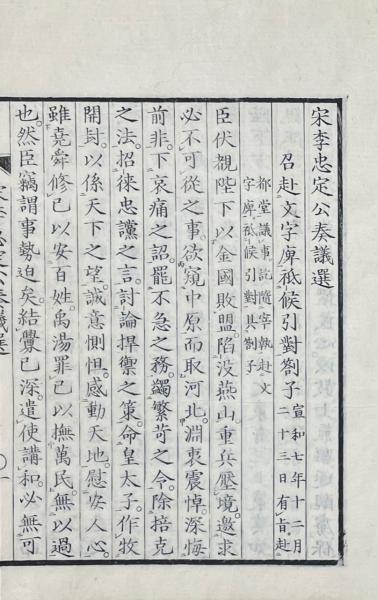 宋李忠定公奏議選
召赴文字庫祗候引對劄子 宣和七年十二月
二十三日有旨赴
都堂議事訖隨宰執赴文
字庫祗候引對具劄子
臣伏覩陛下以金國敗盟陷没燕山重兵壓境邀求
必不可從之事欲窺中原而取河北淵衷震悼深悔
前非下哀痛之詔罷不急之務蠲繁苛之令除掊克
之法招徠忠讜之言討論捍禦之策命皇太子作牧
開封以係天下之望誠意惻怛感動天地慰安人心
雖堯舜修己以安百姓禹湯罪己以撫萬民無以過
也然臣竊謂事勢迫矣結釁已深遣使講和必無可